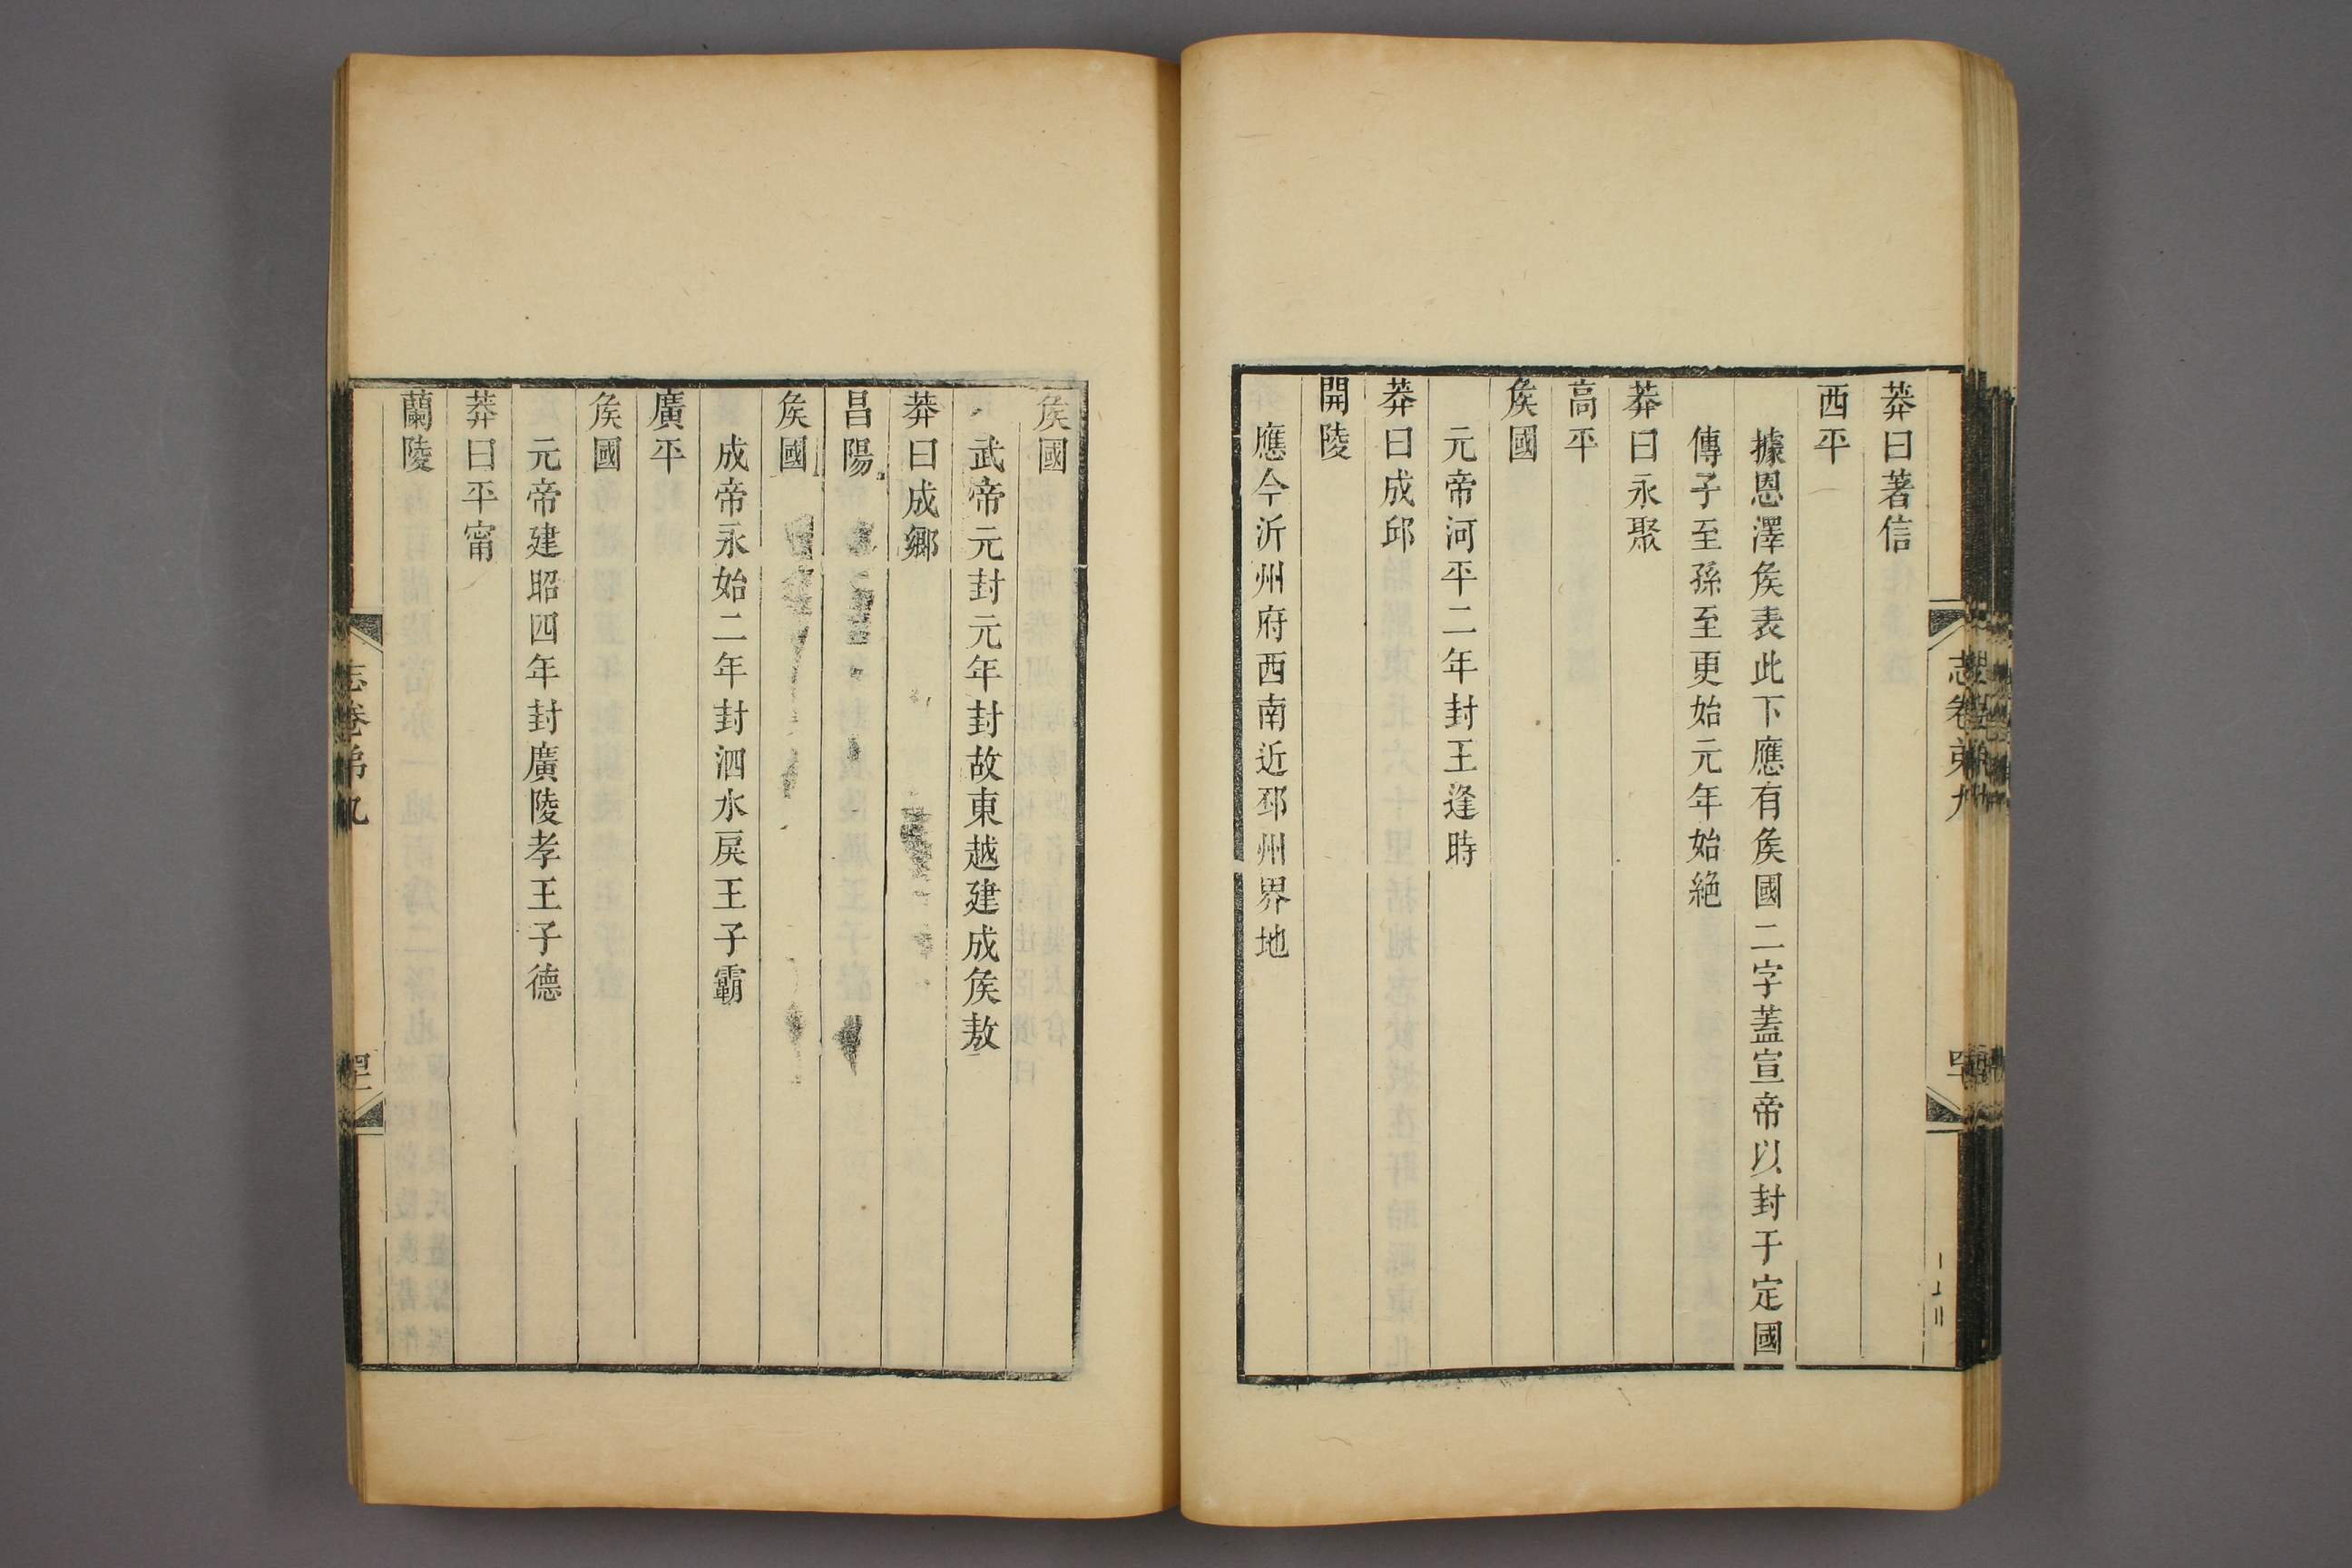 莽曰著信
西平
據恩澤矦表此下應有矦國二字蓋宣帝以封于定國
傳子至孫至更始元年始絕
莽曰永聚
高平
矦國
元帝河平二年封王逢時
莽曰成邱
開陵
應今沂州府西南近邳州界地
矦國
武帝元封元年封故東越建成矦敖
莽曰成鄉
昌陽
矦國
成帝永始二年封泗水戾王子霸
廣平
矦國
元帝建昭四年封廣陵孝王子德
莽曰平甯
蘭陵
志卷弟九